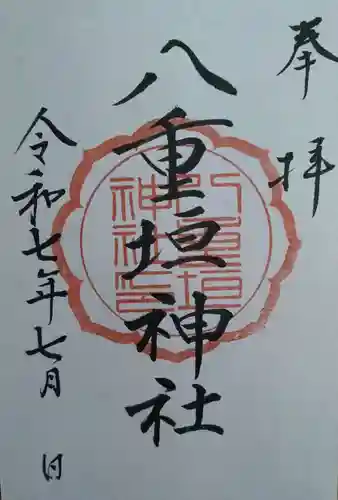 奉拝
八重垣神社
八重垣神社之印
令和七年七月 日